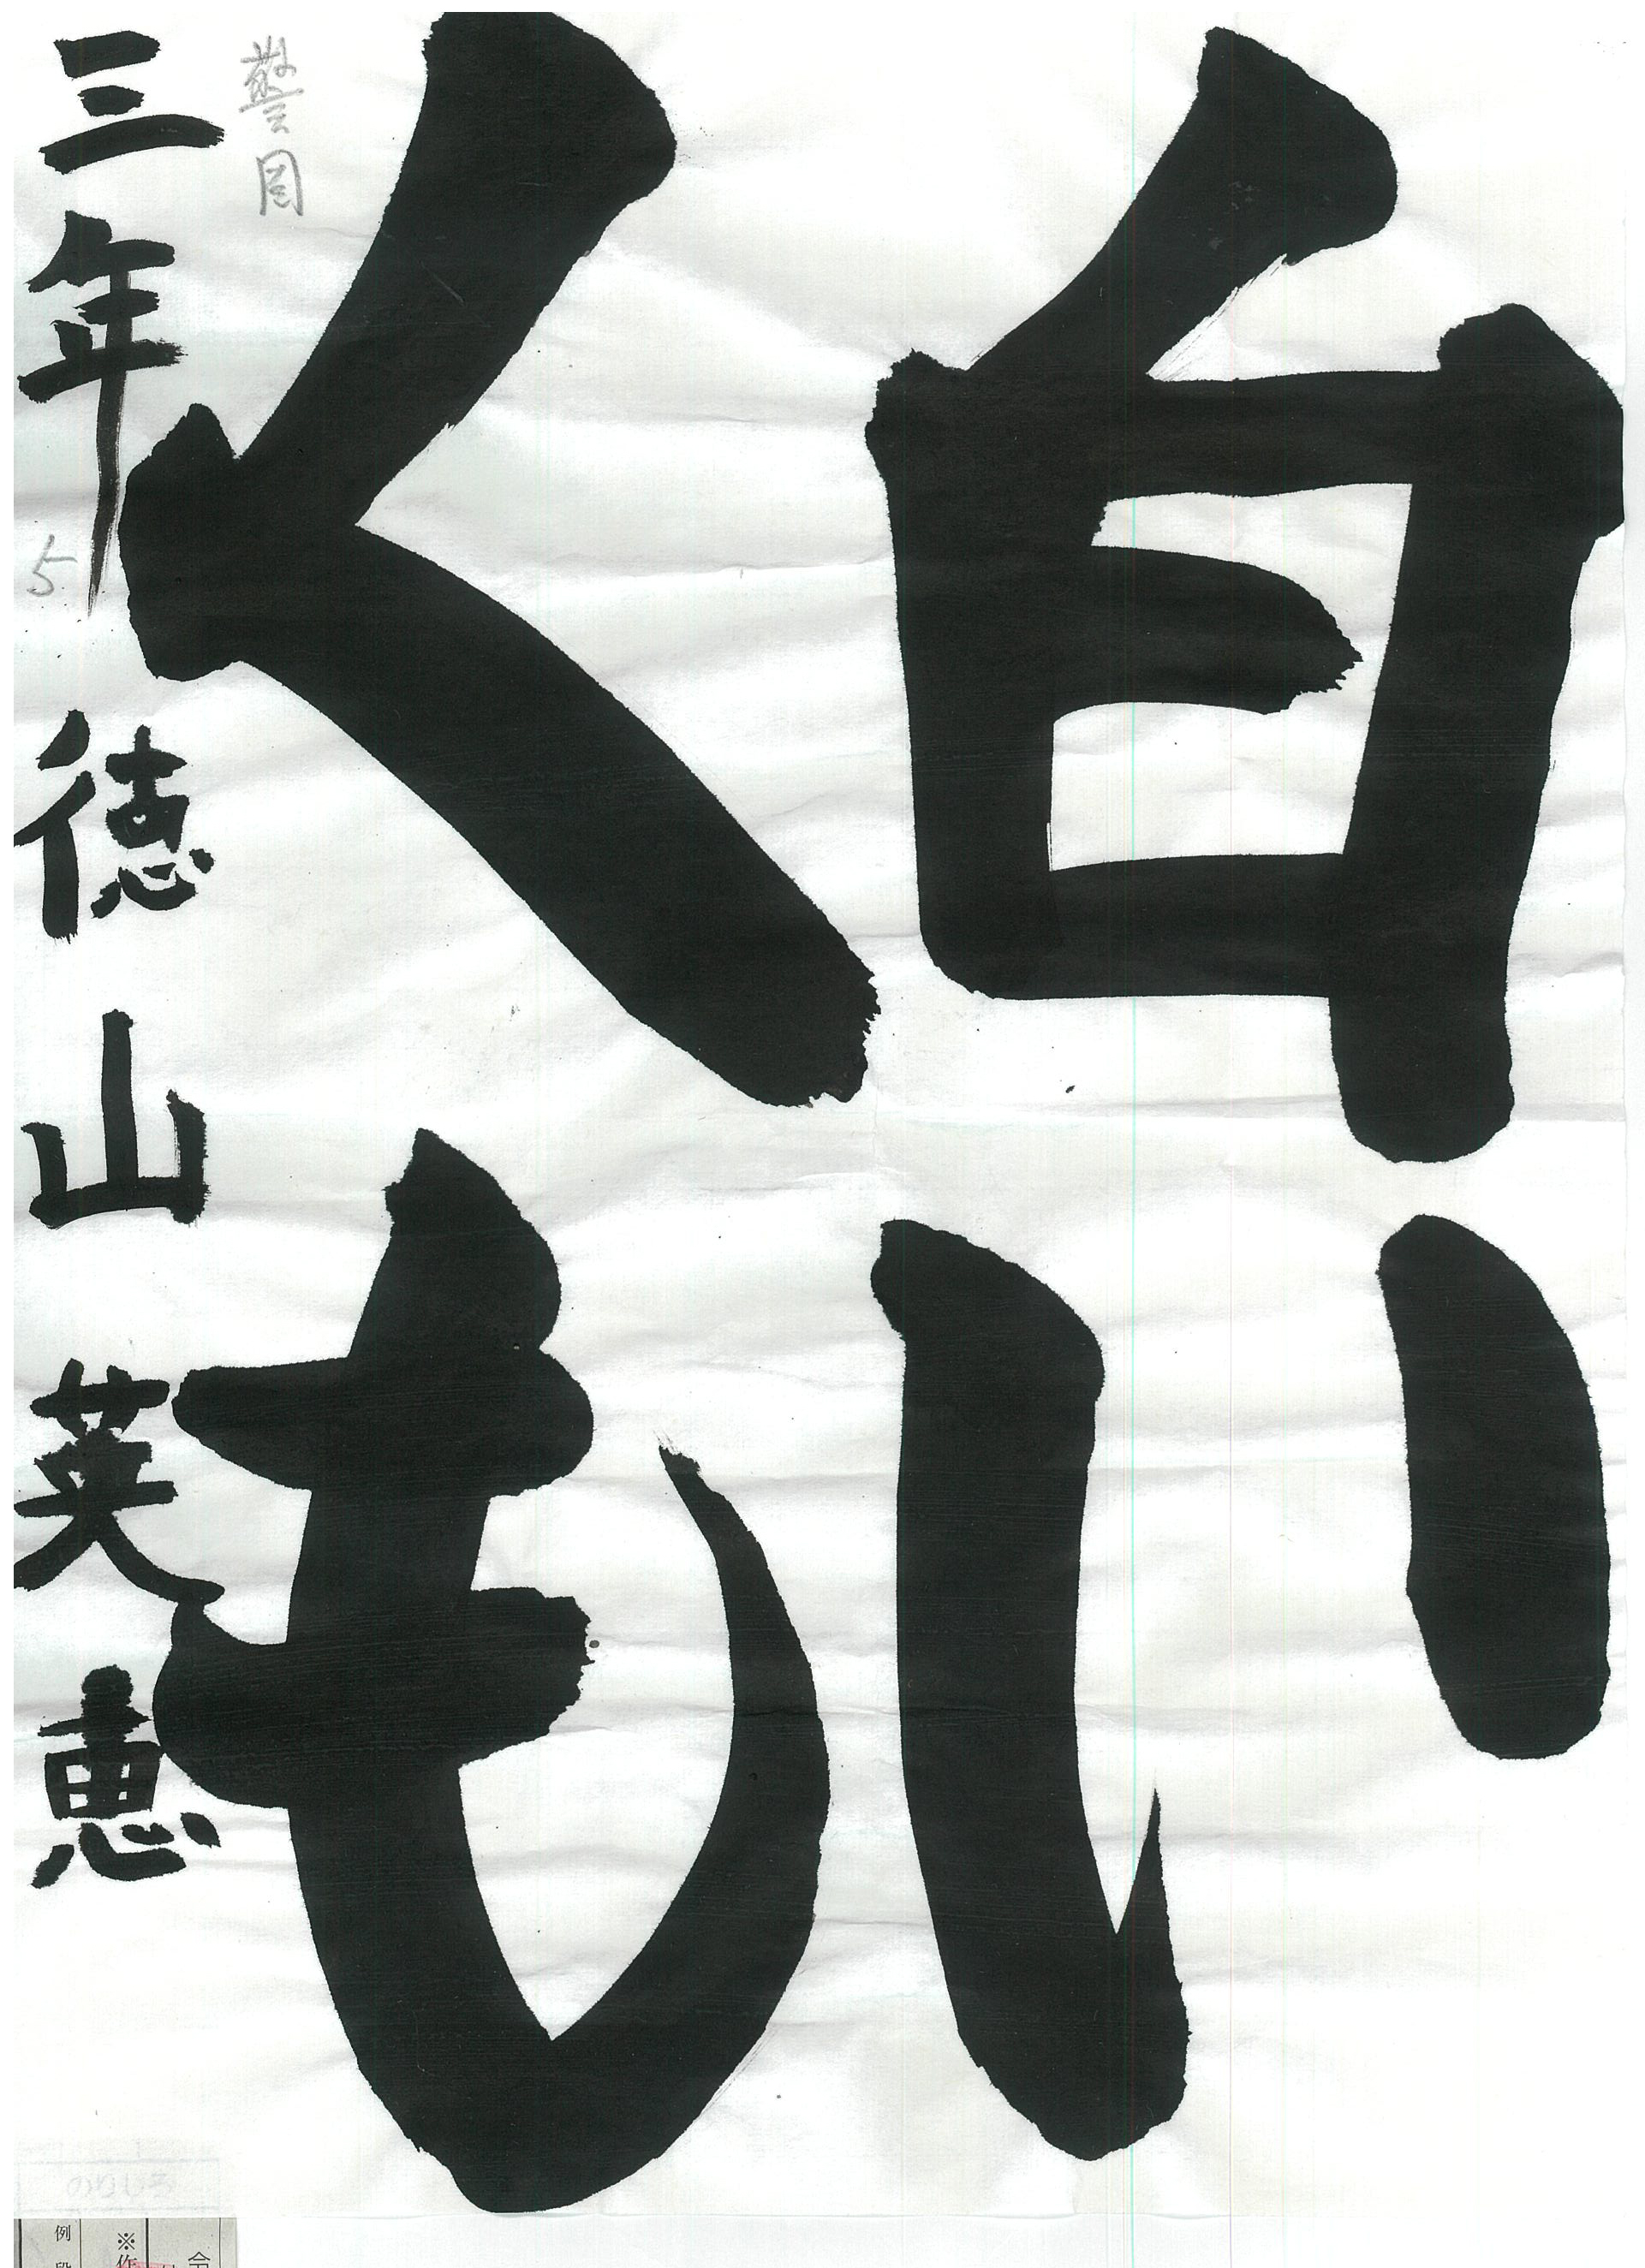 白い
くも
三年 徳山英恵
5
のりしろ
令
※作
例 段